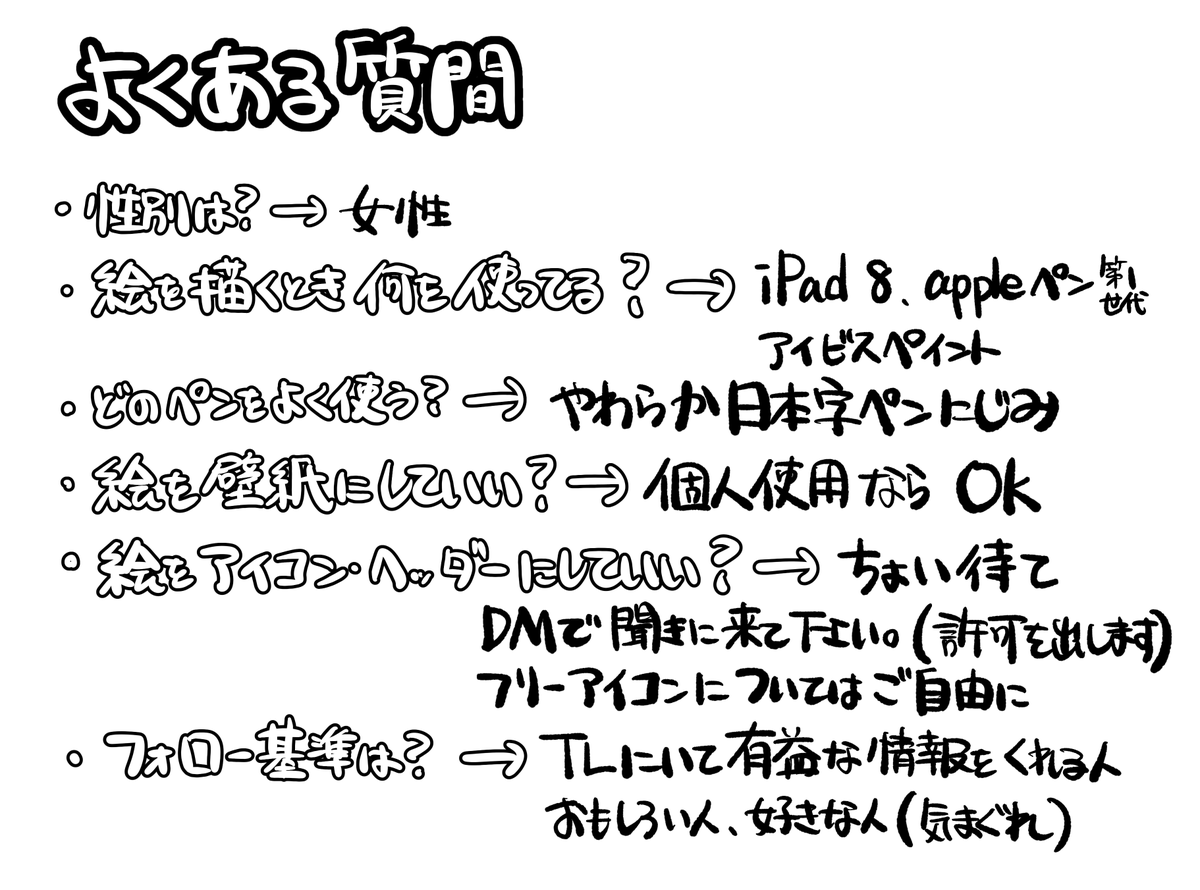 よくある質問
・性別は?→女性
・絵を描くとき何を使ってる?→iPad 8、appleペン第1世代
アイビスペイント
・どのペンをよく使う?→やわらか日本字ペンにじみ
・絵を壁紙にしていい?→個人使用なら Ok
・絵をアイコン・ヘッダーにしていい?→ちょい待て
DMで聞きに来て下さい。(許可を出します)
フリーアイコンについてはご自由に
・フォロー基準は?→TLにいて有益な情報をくれる人
おもしろい人、好きな人(気まぐれ)